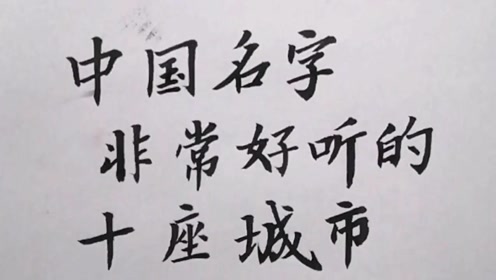 中国名字
非常好听的
十座城市